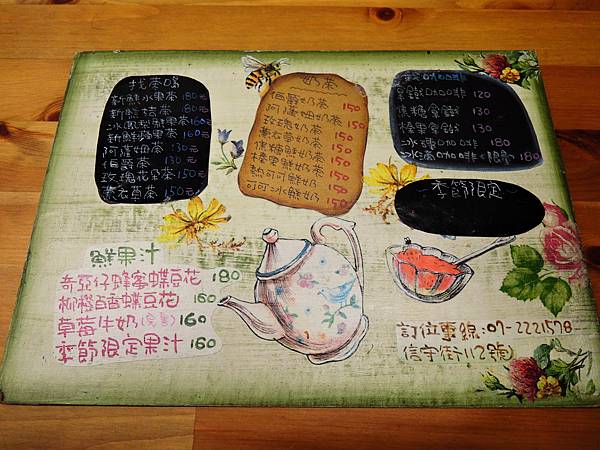 找茶喝
新鮮水果茶 180元
新鮮桔茶 80元
冰鳳梨鮮果茶 160元
新鮮蘋果茶 160元
阿薩姆茶 130元
伯爵茶 130元
玫瑰花草茶 150元
薰衣草茶 150元
奶茶
伯爵奶茶 150
阿薩姆奶茶 150
玫瑰奶茶 150
薰衣草奶茶 150
焦糖鮮奶茶 150
榛果鮮奶茶 150
熱可可鮮奶 150
可可冰鮮奶 150
拿鐵 120
焦糖拿鐵 130
榛果拿鐵 130
180
冰滴 180
季節限定
鮮果汁
奇亞仔蜂蜜蝶豆花 180
柳橙百香蝶豆花 160
草莓牛奶 160
季節限定果汁 160
訂位專線:07-2221578
信守街112號